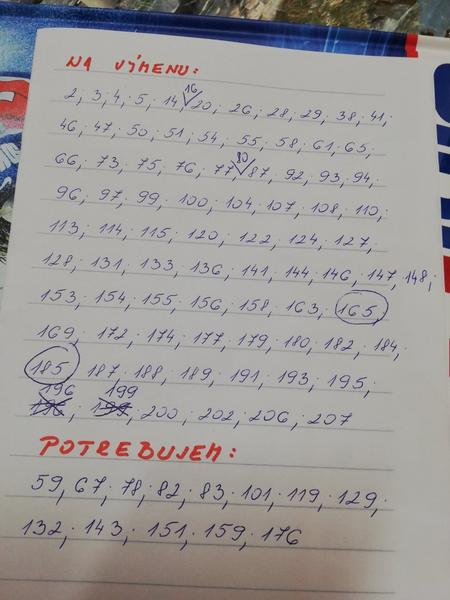 NA VÝMENU:
2, 3, 4, 5, 14, 16, 20, 26, 28, 29, 38, 41,
46, 47, 50, 51, 54, 55, 58, 61, 65,
66, 73, 75, 76, 77, 80, 87, 92, 93, 94,
96, 97, 99, 100, 104, 107, 108, 110,
113, 114, 115, 120, 122, 124, 127,
128, 131, 133, 136, 141, 144, 146, 147, 148,
153, 154, 155, 156, 158, 163, 165,
169, 172, 174, 177, 179, 180, 182, 184,
185, 187, 188, 189, 191, 193, 195,
196, 199, 200, 202, 206, 207
POTREBUJEM:
59, 67, 78, 82, 83, 101, 119, 129,
132, 143, 151, 159, 176